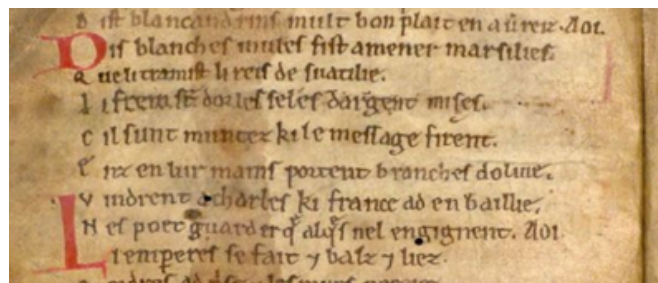 D ist blancandrins mult bon plait en aureiz. Aoi.
Dis blanches mules fist amener marsilies.
Q ue li tramist li reis de suatilie.
L i frein st dor les seles dargent mises.
C il sunt muntez ki le message firent.
E nz en lur mains portent branches doliue.
V indrent a charles ki france ad en baillie.
N es poet guarder q̄ alq̄s nel engignent. Aoi
Li empereres se fait ⁊ balz ⁊ liez.